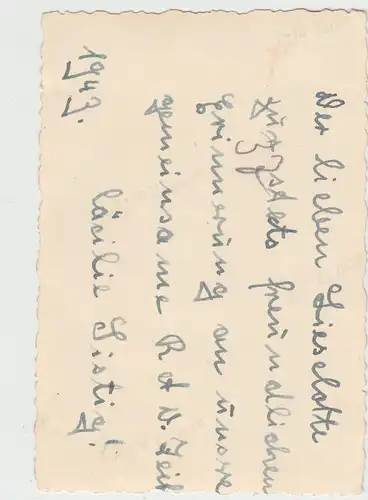 Der lieben Lieselotte
zur stets freundlichen
Erinnerung an unsre
gemeinsame R.A.D. Zeit
Cäcilie
1943.